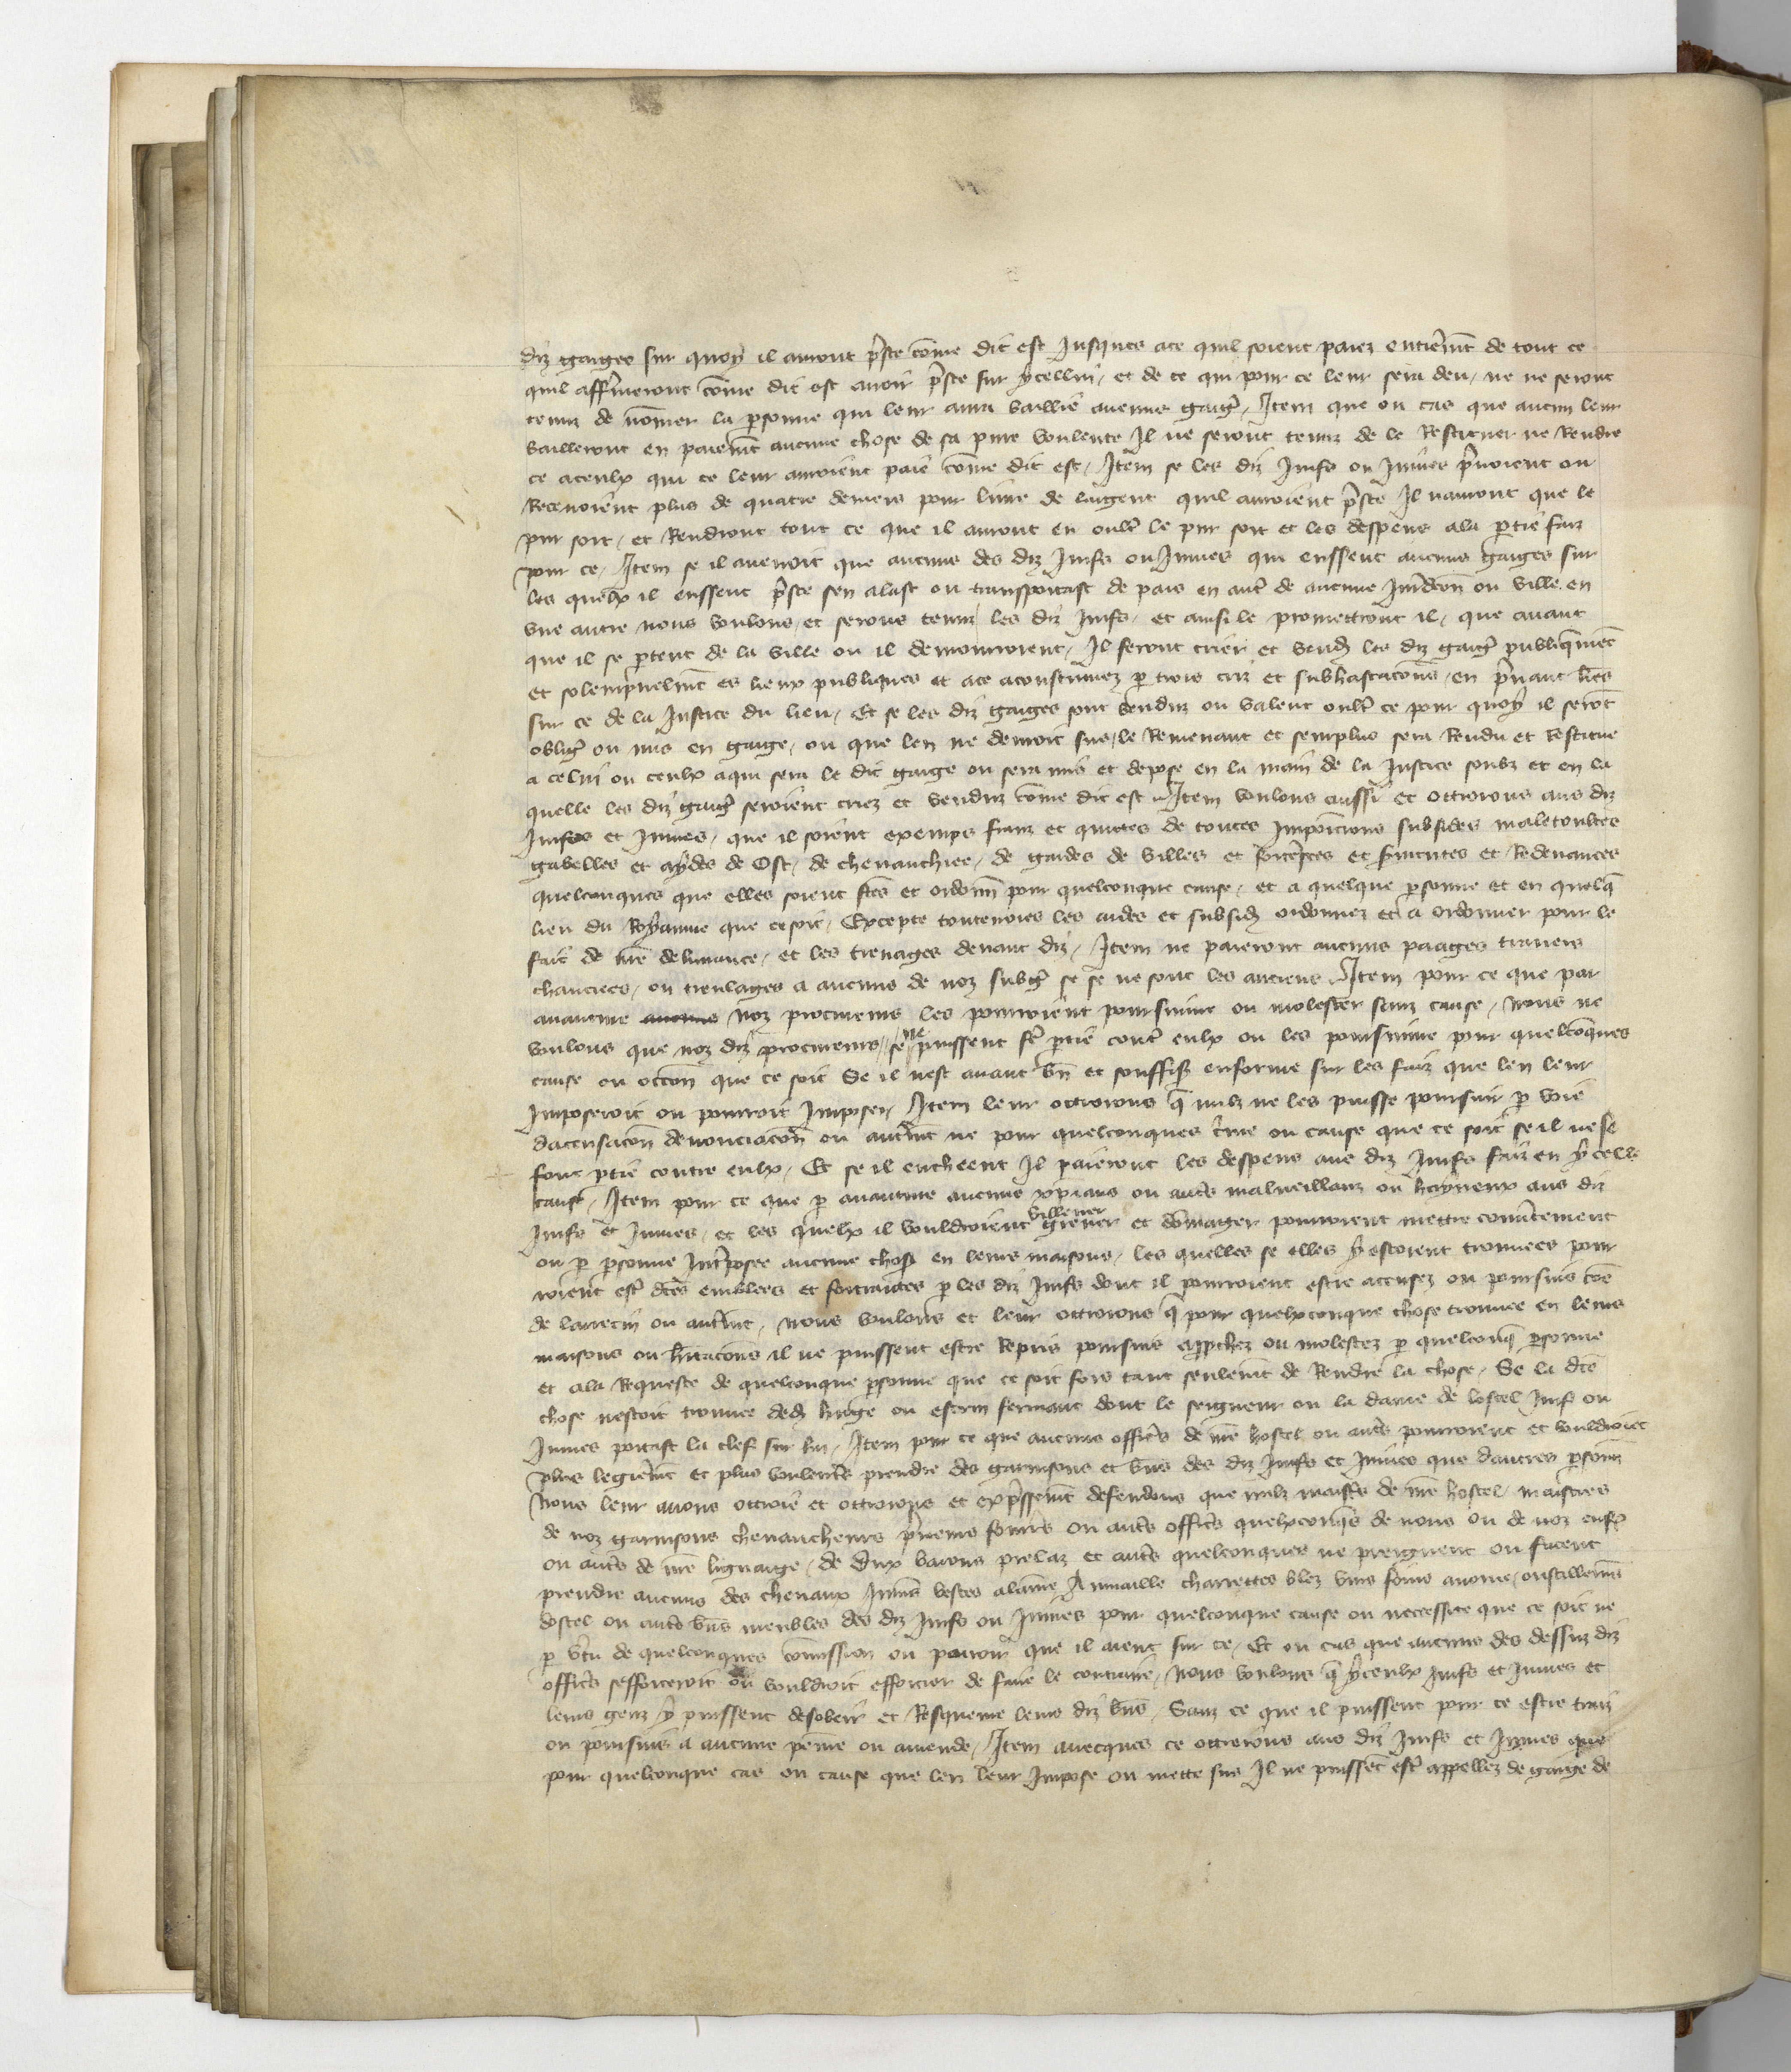 diz gaiges sur quoy il auront p̄ste cōme dit est Jusques ace quil soient paiez entierem̄t de tout ce
quil affermeront cōme dit est auoir p̄ste sur ycellui / et de ce qui pour ce leur sera deu / ne ne seront
tenuz de nōmer la p̄sonne qui leur aura baillié aucuns gaiḡ / Item que ou cas que aucun leur
bailleront en paiem̄t aucune chose de sa pure voulente Il ne seront tenuz de le Restituer ne Rendre
ce aceulx qui ce leur auroient paié cōme dit est / Item se les diz Juifs ou Juiues p̄noient ou
Receuoient plus de quatre deniers pour liure de largent quil auroient p̄ste Il nauront que le
pur sort / et Rendront tout ce que il auront eu oult̄ le pur sort et les despens ala p̄tie faiz
pour ce / Item se il auenoit que aucuns des diz Juifs ou Juiues qui eussent aucuns gaiges sur
les quelx il eussent p̄ste sen alast ou transportast de pais en aut̄ de aucune Juridc̄on ou ville en
vne autre nous voulons / et serons tenuz les diz Juifs / et ainsi le promettront il / que auant
que il se p̄tent de la ville ou il demourroient / Il feront crier et vendr̄ les diz gaiḡ publiquem̄et
et solempnelm̄t es lieux publiques et ace acoustumez p̄ trois criz et subhastac̄ons / en p̄nant l̄res
sur ce de la Justice du lieu / Et se les diz gaiges sont venduz ou valent oult̄ ce pour quoy il serōt
obliḡ ou mis en gaige / ou que len ne deuroit sus / le Remenant et semplus sera Rendu et Restitue
a celui ou ceulx aqui sera le dit gaige ou sera mis et depose en la main de la Justice soubz et en la
quelle les diz gaiḡ seroient criez et venduz cōme dit est Item voulons aussi et ottroions aus diz
Juifs et Juiues / que il soient exemps franz et quictes de toutes Imposicions subsides maletoultes
gabelles et aydes de Ost / de cheuauchiee / de gardes de villes et forteresces et fruictutes et Redeuances
quelconques que elles soient f̄tes et ordonn̄ pour quelconque cause / et a quelque p̄sonne et en quelq̄
lieu du Royaume que ce soit / Excepte touteuoies les aides et subsid̄ ordonnez et a ordonner pour le
fait de nr̄e deliurance / et les treuages deuant diz / Item ne paieront aucuns paages trauers
chauciees / ou treulages a aucuns de noz subḡ se se ne sont les anciens Item pour ce que par
auanture noz procureurs les pourroient poursuiure ou molester sanz cause / nous ne
voulons que noz diz procureurs / se ne puissent f̄e p̄tie cont̄ eulx ou les poursuiure pour quelconques
cause ou occ̄on que ce soit Se il nest auant b̄n et souffis̄ enforme sur les faiz que len leur
Imposeroit ou pourroit Imposer / Item leur ottroions q̄ nulz ne les puisse poursuir p̄ voie
dacusac̄on denonciac̄on ou autrem̄t ne pour quelconques crīe ou cause que ce soit se il ne se
font p̄tie contre eulx / Et se il encheent Il paieront les despens aus diz Juifs faiz en ycelle
cause / Item pour ce que p̄ auanture aucuns xp̄ians ou aut̄s malueillanz ou hayneux aus diz
Juifs et Juiues / et les quelx il vouldroient villener greuer et dōmager pourroient mettre couu̅tement
ou p̄ p̄sonne Int̄posee aucune chose en leurs maisons / les quelles se elles y estoient trouuees pour
roient est̄ d̄tes emblees et fortraictes p̄ les diz Juifs dont il pourroient estre accusez ou poursuis cōe
de larrecin ou autrem̄t / nous voulons et leur ottroions q̄ pour quelxconque chose trouuee en leurs
maisons ou h̄itac̄ons il ne puissent estre Repris poursuis app̄chez ou molestez p̄ quelconq̄ p̄sonne
et ala Requeste de quelconque p̄sonne que ce soit fors tant seulem̄t de Rendre la chose / Se la d̄te
chose nestoit trouuee ded̄ huge ou escrin fermant dont le seigneur ou la dame de lostel Juif ou
Juiues portast la clef sur lui / Item pour ce que aucuns offic̄rs de nr̄e hostel ou aut̄s pourroient et vouldroiet
plus legierem̄t et plus voulent̄rs prendre des garnisons et b̄ns des diz Juifs et Juiues que dautres p̄sonn̄
Nous leur auons ottroié et ottroions et exp̄ssem̄t defendons que nulz maist̄s de nr̄e hostel / maistres
de noz garnisons cheuaucheurs p̄neurs fourr̄s ou aut̄s offic̄rs quelxconq̄s de nous ou de noz enfs̄
ou aut̄s de nr̄e lignaige / de Dux barons prelaz et aut̄s quelconques ne preignent ou facent
prendre aucuns des cheuaux Jum̄s bestes alaine Aumaille charrettes blez vins foins auoine / oustillem̄s
dostel ou aut̄s b̄ns meubles des diz Juifs ou Juiues pour quelconque cause ou necessite que ce soit ne
p̄ v̄tu de quelconques cōmission ou pouoir que il aient sur ce / Et ou cas que aucuns des dessuz diz
offic̄rs sefforceroit ou vouldroit efforcier de faire le contraire / nous voulons q̄ yceulx Juifs et Juiues et
leurs genz y puissent desobeir et Resqueure leurs diz b̄ns / Sanz ce que il puissent pour ce estre traiz
ou poursuis a aucune peīne ou amende / Item auecques ce ottroions aus diz Juifs et Juiues que
pour quelconque cas ou cause que len leur Impose ou mette sus Il ne puissēt est̄ appellez de gaige de